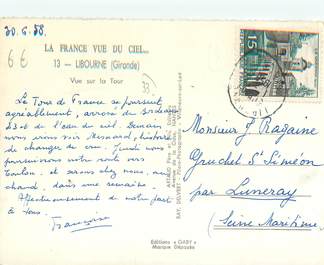 30.6.58.
6€
LA FRANCE VUE DU CIEL...
13 — LIBOURNE (Gironde)
Vue sur la Tour
33
Le Tour de France se poursuit
agréablement, arrosé du bordeaux
et de l'eau du ciel. Demain
nous irons s/s Ossard, histoire
de changer de cru. Jeudi nous
poursuivrons notre route vers
Toulon. et serons chez nous, au
chaud, dans une semaine.
Affectueusement de notre part
à tous.
Françoise
Monsieur J. Ragaine
Gruchet St Siméon
par Luneray
(Seine Maritime)
15F
RAY. DELVERT
Editions « GABY »
Marque Déposée